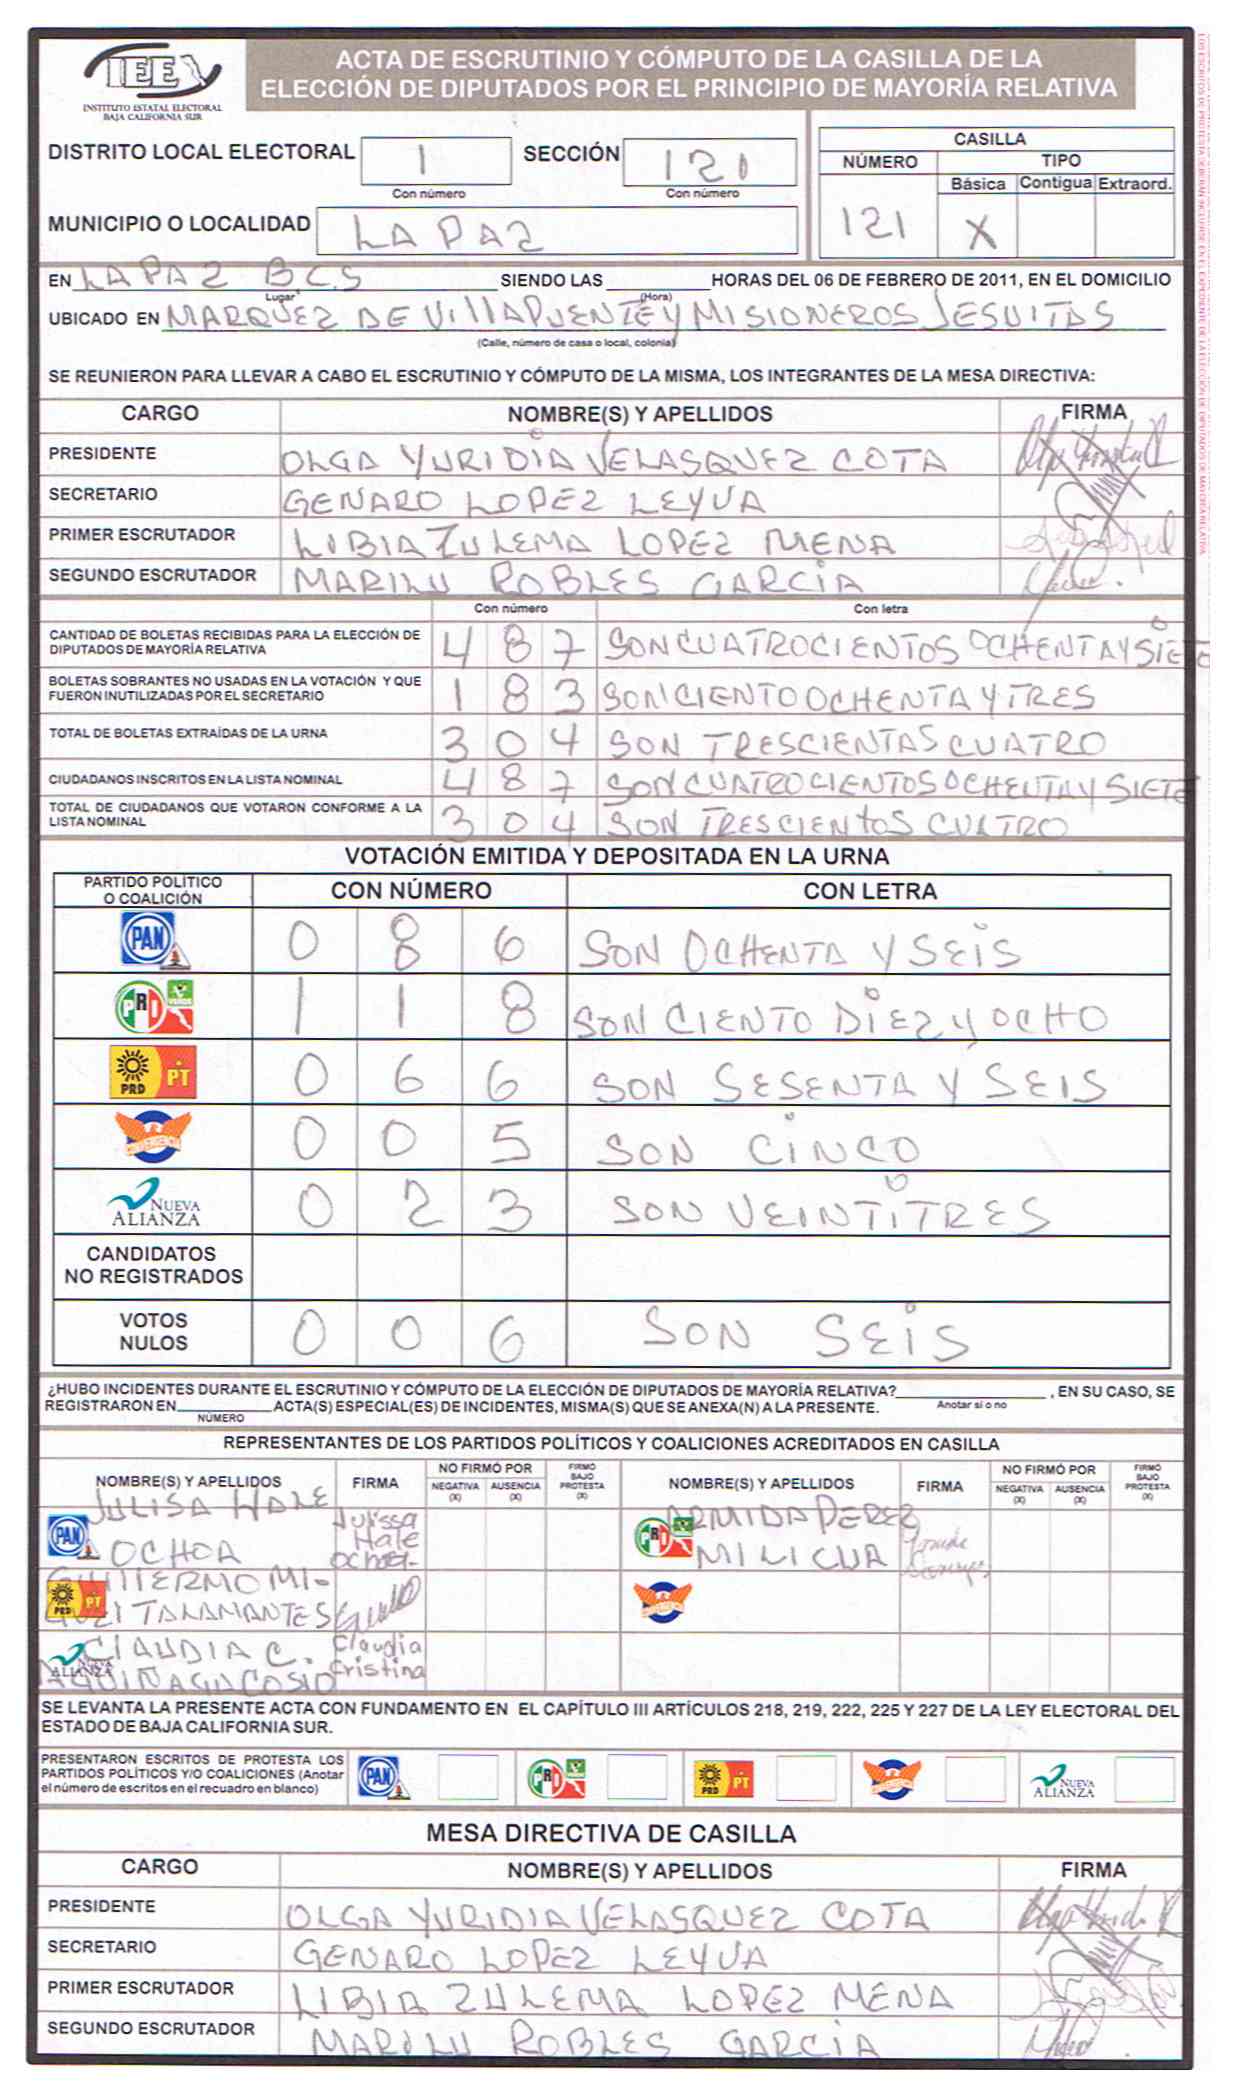 IEE
INSTITUTO ESTATAL ELECTORAL
BAJA CALIFORNIA SUR
ACTA DE ESCRUTINIO Y CÓMPUTO DE LA CASILLA DE LA
ELECCIÓN DE DIPUTADOS POR EL PRINCIPIO DE MAYORÍA RELATIVA
DISTRITO LOCAL ELECTORAL 1 SECCIÓN 121
Con número Con número
CASILLA
NÚMERO TIPO
Básica Contigua Extraord.
121 X
MUNICIPIO O LOCALIDAD LA PAZ
EN LA PAZ B.C.S SIENDO LAS HORAS DEL 06 DE FEBRERO DE 2011, EN EL DOMICILIO
Lugar (Hora)
UBICADO EN MARQUEZ DE VILLAPUENTE Y MISIONEROS JESUITAS
(Calle, número de casa o local, colonia)
SE REUNIERON PARA LLEVAR A CABO EL ESCRUTINIO Y CÓMPUTO DE LA MISMA, LOS INTEGRANTES DE LA MESA DIRECTIVA:
CARGO NOMBRE(S) Y APELLIDOS FIRMA
PRESIDENTE OLGA YURIDIA VELASQUEZ COTA
SECRETARIO GENARO LOPEZ LEYVA
PRIMER ESCRUTADOR LIBIA ZULEMA LOPEZ MENA
SEGUNDO ESCRUTADOR MARILU ROBLES GARCIA
Con número Con letra
CANTIDAD DE BOLETAS RECIBIDAS PARA LA ELECCIÓN DE
DIPUTADOS DE MAYORÍA RELATIVA 4 8 7 SON CUATROCIENTOS OCHENTA Y SIETE
BOLETAS SOBRANTES NO USADAS EN LA VOTACIÓN Y QUE
FUERON INUTILIZADAS POR EL SECRETARIO 1 8 3 SON CIENTO OCHENTA Y TRES
TOTAL DE BOLETAS EXTRAÍDAS DE LA URNA 3 0 4 SON TRESCIENTAS CUATRO
CIUDADANOS INSCRITOS EN LA LISTA NOMINAL 4 8 7 SON CUATROCIENTOS OCHENTA Y SIETE
TOTAL DE CIUDADANOS QUE VOTARON CONFORME A LA
LISTA NOMINAL 3 0 4 SON TRESCIENTOS CUATRO
VOTACIÓN EMITIDA Y DEPOSITADA EN LA URNA
PARTIDO POLÍTICO
O COALICIÓN CON NÚMERO CON LETRA
PAN 0 8 6 SON OCHENTA Y SEIS
PRI VERDE 1 1 8 SON CIENTO DIEZ Y OCHO
PRD PT 0 6 6 SON SESENTA Y SEIS
CONVERGENCIA 0 0 5 SON CINCO
NUEVA ALIANZA 0 2 3 SON VEINTITRES
CANDIDATOS
NO REGISTRADOS
VOTOS
NULOS 0 0 6 SON SEIS
¿HUBO INCIDENTES DURANTE EL ESCRUTINIO Y CÓMPUTO DE LA ELECCIÓN DE DIPUTADOS DE MAYORÍA RELATIVA? , EN SU CASO, SE
REGISTRARON EN ACTA(S) ESPECIAL(ES) DE INCIDENTES, MISMA(S) QUE SE ANEXA(N) A LA PRESENTE. Anotar si o no
NÚMERO
REPRESENTANTES DE LOS PARTIDOS POLÍTICOS Y COALICIONES ACREDITADOS EN CASILLA
NOMBRE(S) Y APELLIDOS FIRMA NO FIRMÓ POR NEGATIVA (X) AUSENCIA (X) FIRMÓ BAJO PROTESTA (X) NOMBRE(S) Y APELLIDOS FIRMA NO FIRMÓ POR NEGATIVA (X) AUSENCIA (X) FIRMÓ BAJO PROTESTA (X)
PAN JULISA HALE OCHOA Julissa Hale Ochoa PRI ARMIDA PEREZ MILICUA
PRD PT GUILLERMO MI- TALAMANTES CONVERGENCIA
NUEVA ALIANZA CLAUDIA C. AQUIÑAGA COSIO Claudia Cristina
SE LEVANTA LA PRESENTE ACTA CON FUNDAMENTO EN EL CAPÍTULO III ARTÍCULOS 218, 219, 222, 225 Y 227 DE LA LEY ELECTORAL DEL
ESTADO DE BAJA CALIFORNIA SUR.
PRESENTARON ESCRITOS DE PROTESTA LOS
PARTIDOS POLÍTICOS Y/O COALICIONES (Anotar
el número de escritos en el recuadro en blanco) PAN PRI PRD PT CONVERGENCIA NUEVA ALIANZA
MESA DIRECTIVA DE CASILLA
CARGO NOMBRE(S) Y APELLIDOS FIRMA
PRESIDENTE OLGA YURIDIA VELASQUEZ COTA
SECRETARIO GENARO LOPEZ LEYVA
PRIMER ESCRUTADOR LIBIA ZULEMA LOPEZ MENA
SEGUNDO ESCRUTADOR MARILU ROBLES GARCIA
LOS ESCRITOS DE PROTESTA DEBERÁN INCLUIRSE EN EL EXPEDIENTE DE LA ELECCIÓN DE DIPUTADOS DE MAYORÍA RELATIVA